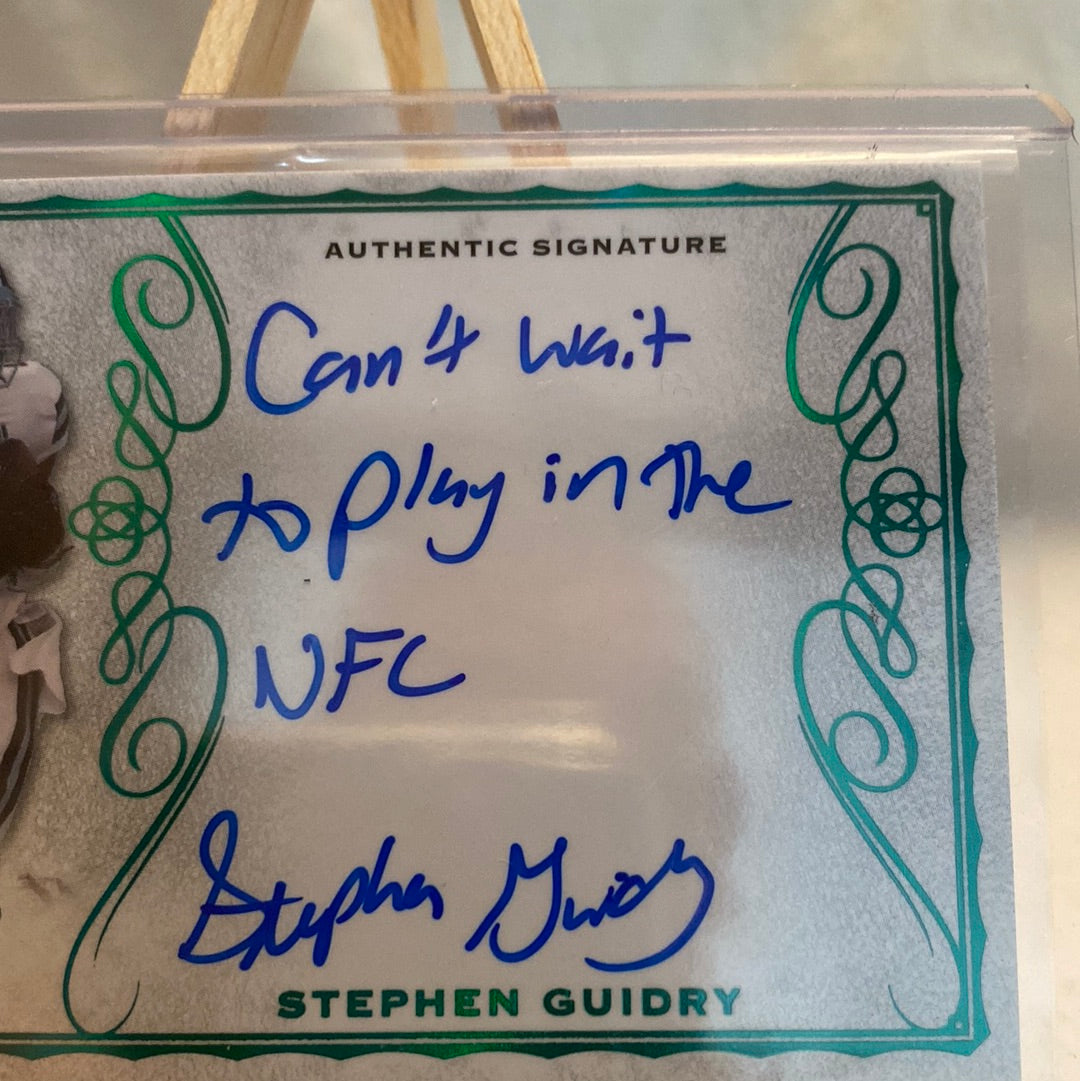 AUTHENTIC SIGNATURE
Can't wait
to play in the
NFC
Stephen Guidry
STEPHEN GUIDRY